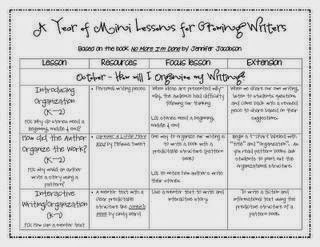 A Year of Mini Lessons for Growing Writers
Based on the book No More I'm Done by Jennifer Jacobson
Lesson
Resources
Focus lesson
Extension
October - How will I Organize my Writing?
Introducing
Organization
(K-2)
FQ: Why do stories need a
beginning, middle & end?
Personal writing piece
When ideas are presented
way, the audience had difficulty
following our thinking
LQ: Stories need a beginning,
middle & end
When we share our own writing,
listen to students questions
and come back with a revised
piece to share based on their
suggestions
How did the Author
Organize the Work?
(K-2)
FQ: Why would an author
write a story using a
pattern?
Read by Melinda
One way to organize our writing is
to write a book with a
predictable structure (pattern
book)
LQ: To entice two authors write
their stories
Begin a T-chart labeled with
"title" and "organization". As
you read pattern books ask
students to point out the
organizational structure
Interactive
Writing/Organization
(K-2)
FQ: How can a mentor text
A mentor text with a clear
predictable
structure like
by Cindy Ward
Use a mentor text to write and
interactive story
To write a fiction and
informational text using the
predictable structure
of a pattern book